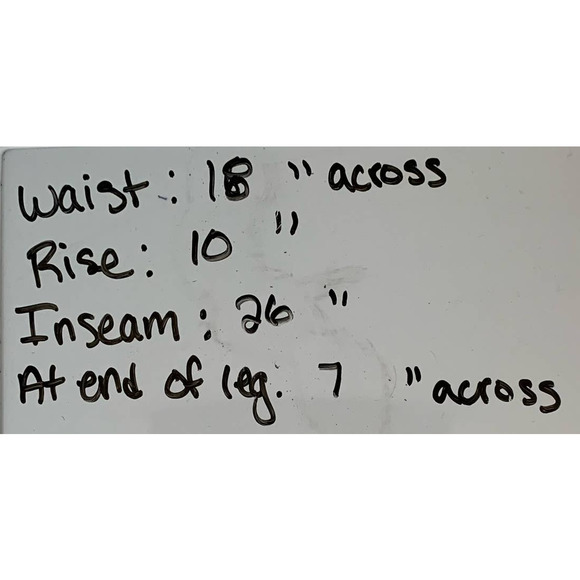 Waist: 18 " across
Rise: 10 "
Inseam: 26 "
At end of leg. 7 " across